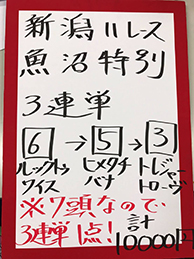 新潟11レース
魚沼特別
3連単
6→5→3
ルックトゥワイス ヒメタチバナ トレジャートローヴ
※7頭なので
3連単1点!
計
10000円